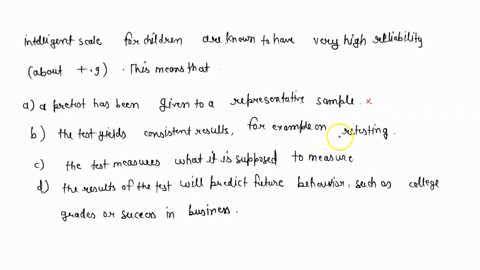 intelligent scale for children are known to have very high reliability
(about +.9) . This means that
a) a pretest has been given to a representative sample. x
b) the test yields consistent results, for example on retesting.
c) the test measures what it is supposed to measure
d) the results of the test will predict future behavior, such as college
grades or success in business.